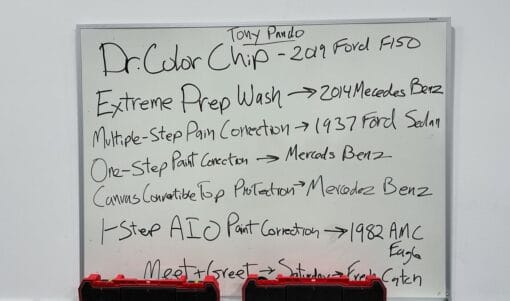 Tony Pando
Dr. Color Chip - 2019 Ford F150
Extreme Prep Wash → 2014 Mecedes Benz
Multiple-Step Pain Correction → 1937 Ford Sedan
One-Step Paint Correction → Merceds Benz
Canvas Convertible Top Protection → Mercedez Benz
1-Step AIO Paint Correction → 1982 AMC
Eagle
Meet + Greet → Saturday → Fresh Catch